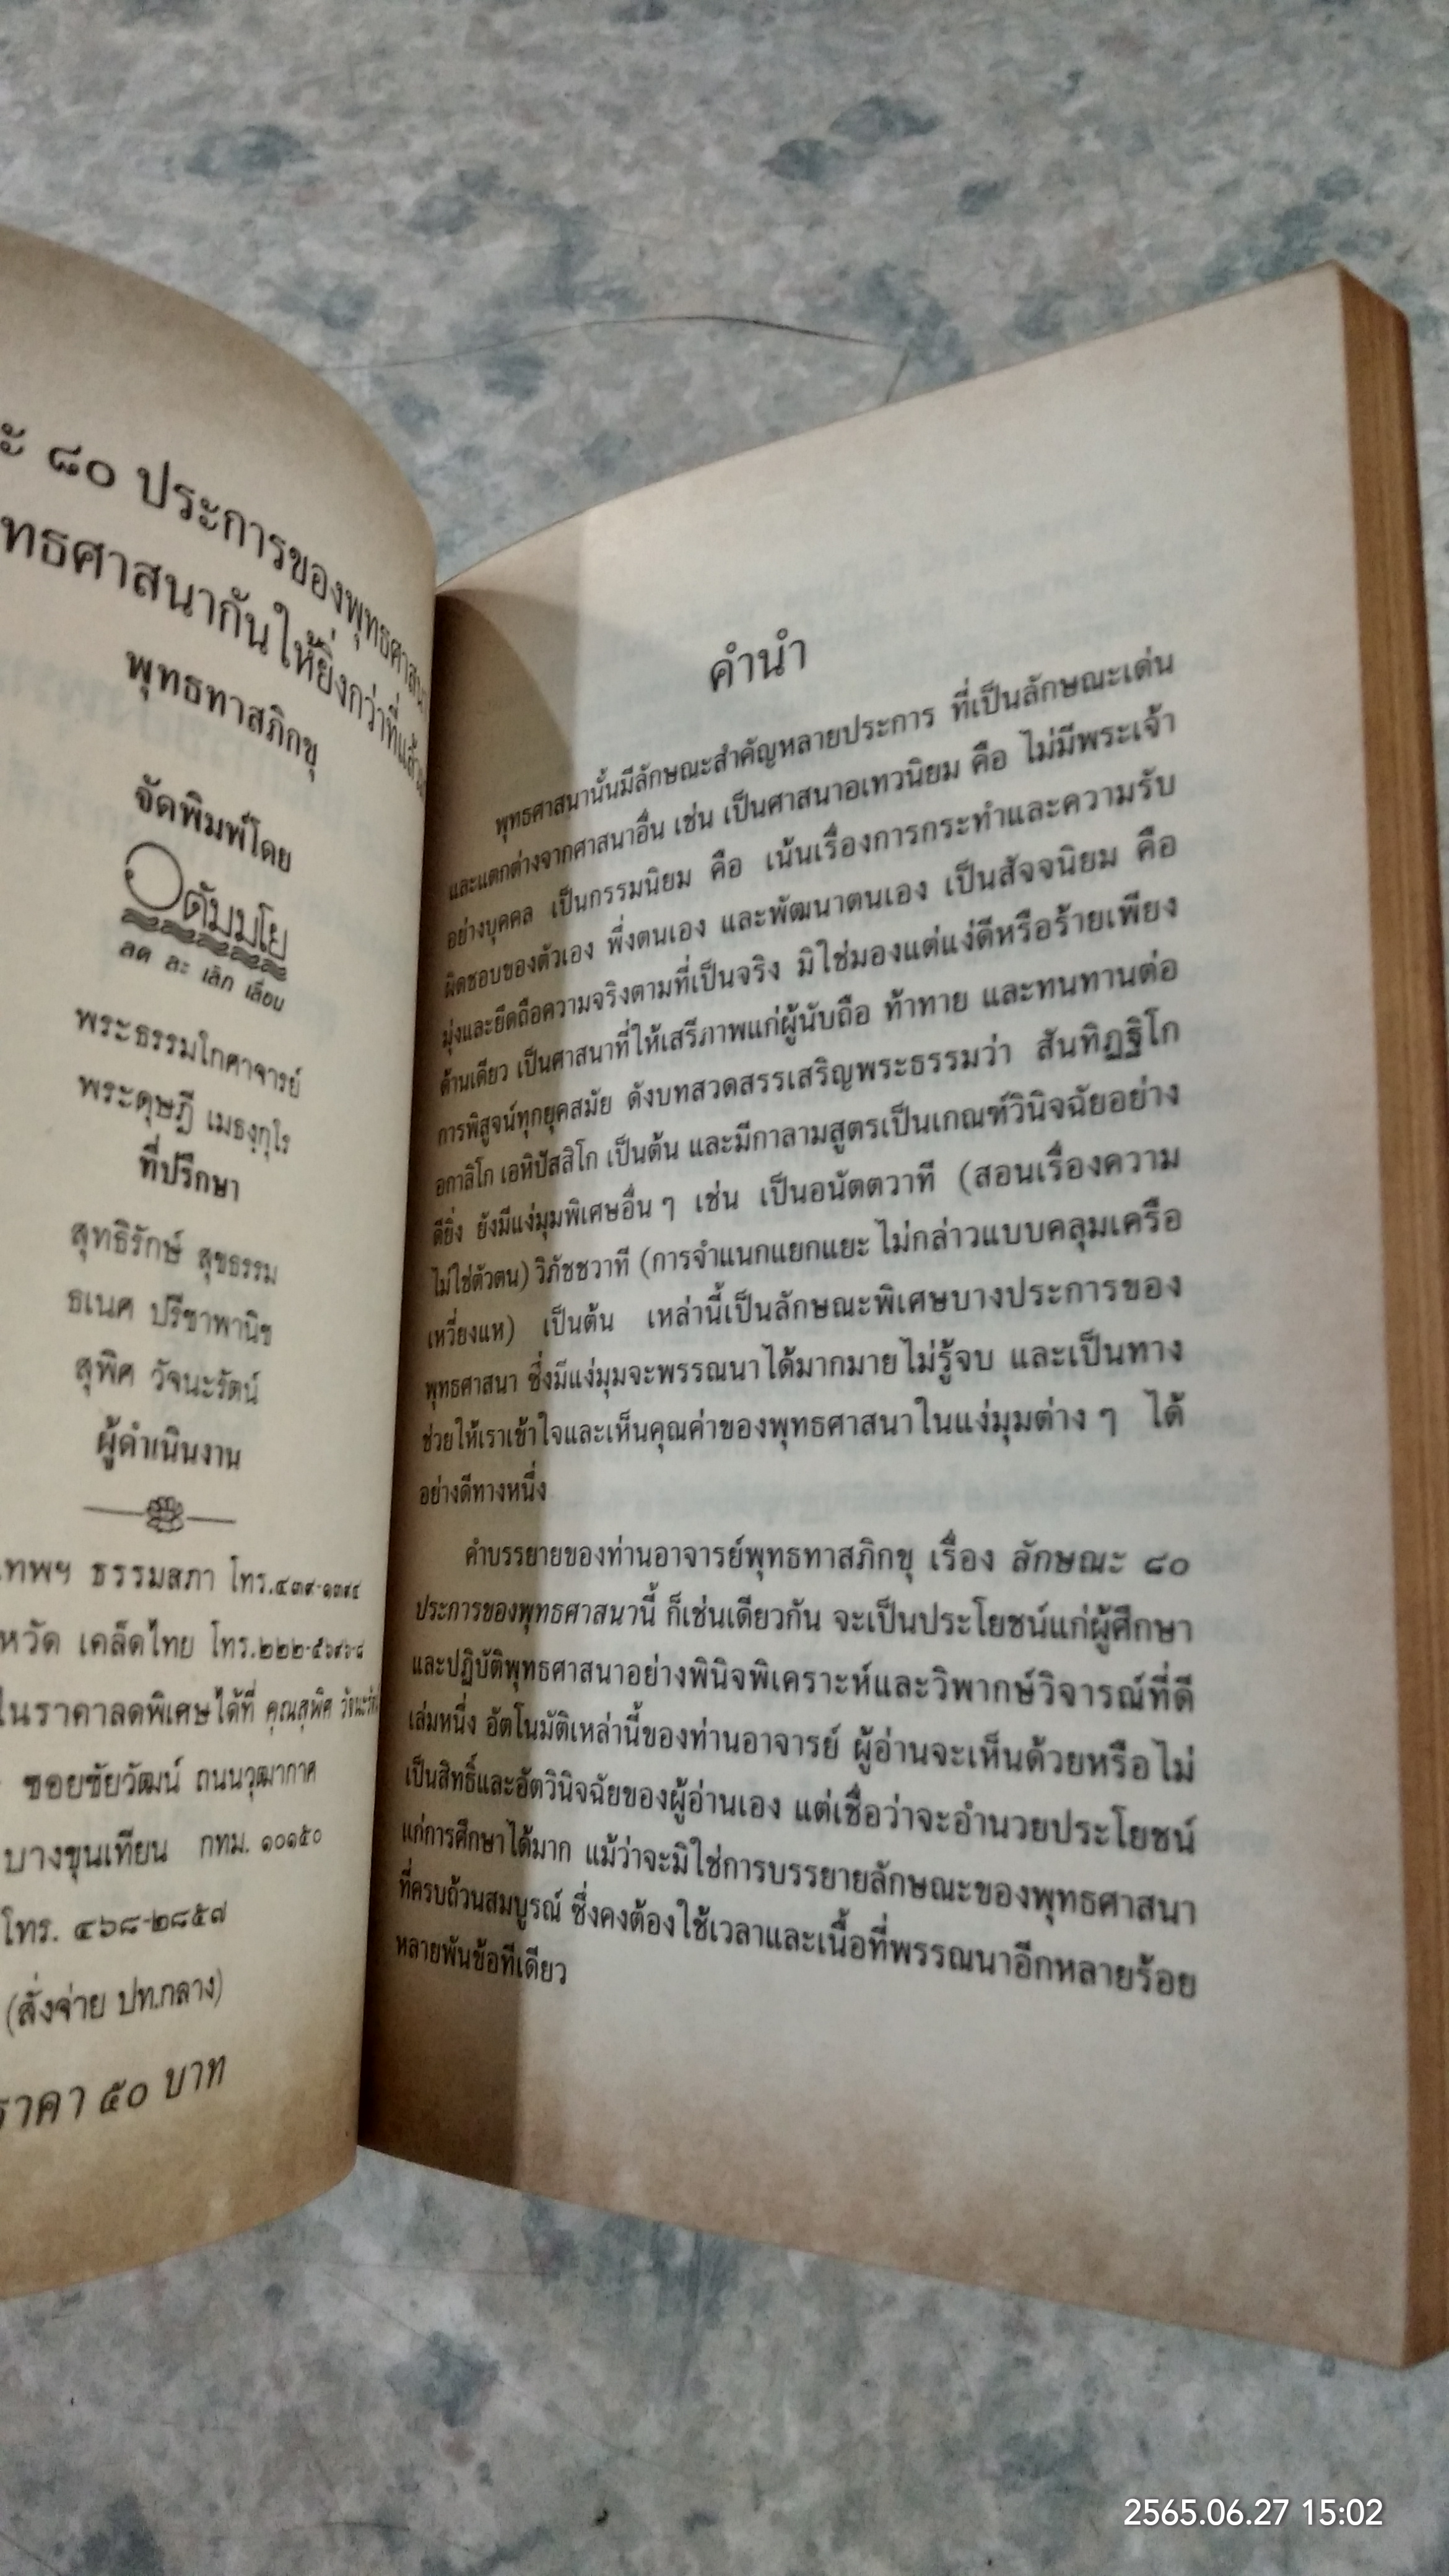 ะ ๘๐ ประการของพุทธศาสนา
ทธศาสนากันให้ยิ่งกว่าที่แล้ว
พุทธทาสภิกขุ
จัดพิมพ์โดย
อตัมมโย
ลด ละ เลิก เลื่อน
พระธรรมโกศาจารย์
พระดุษฎี เมธงฺกุโร
ที่ปรึกษา
สุทธิรักษ์ สุขธรรม
ธเนศ ปรีชาพานิช
สุพิศ วัจนะรัตน์
ผู้ดำเนินงาน
เทพฯ ธรรมสภา โทร.๔๓๙-๑๓๙๔
หวัด เคล็ดไทย โทร.๒๒๒-๕๖๙๖-๘
ในราคาลดพิเศษได้ที่ คุณสุพิศ วัจนะรัตน์
ซอยชัยวัฒน์ ถนนวุฒากาศ
บางขุนเทียน กทม. ๑๐๑๕๐
โทร. ๔๖๘-๒๘๕๗
(สั่งจ่าย ปท.กลาง)
ราคา ๕๐ บาท
คำนำ
พุทธศาสนานั้นมีลักษณะสำคัญหลายประการ ที่เป็นลักษณะเด่น
และแตกต่างจากศาสนาอื่น เช่น เป็นศาสนาอเทวนิยม คือ ไม่มีพระเจ้า
อย่างบุคคล เป็นกรรมนิยม คือ เน้นเรื่องการกระทำและความรับ
ผิดชอบของตัวเอง พึ่งตนเอง และพัฒนาตนเอง เป็นสัจจนิยม คือ
มุ่งและยึดถือความจริงตามที่เป็นจริง มิใช่มองแต่แง่ดีหรือร้ายเพียง
ด้านเดียว เป็นศาสนาที่ให้เสรีภาพแก่ผู้นับถือ ท้าทาย และทนทานต่อ
การพิสูจน์ทุกยุคสมัย ดังบทสวดสรรเสริญพระธรรมว่า สันทิฏฐิโก
อกาลิโก เอหิปัสสิโก เป็นต้น และมีกาลามสูตรเป็นเกณฑ์วินิจฉัยอย่าง
ดียิ่ง ยังมีแง่มุมพิเศษอื่น ๆ เช่น เป็นอนัตตวาที (สอนเรื่องความ
ไม่ใช่ตัวตน) วิภัชชวาที (การจำแนกแยกแยะ ไม่กล่าวแบบคลุมเครือ
เหวี่ยงแห) เป็นต้น เหล่านี้เป็นลักษณะพิเศษบางประการของ
พุทธศาสนา ซึ่งมีแง่มุมจะพรรณนาได้มากมายไม่รู้จบ และเป็นทาง
ช่วยให้เราเข้าใจและเห็นคุณค่าของพุทธศาสนาในแง่มุมต่าง ๆ ได้
อย่างดีทางหนึ่ง
คำบรรยายของท่านอาจารย์พุทธทาสภิกขุ เรื่อง ลักษณะ ๘๐
ประการของพุทธศาสนานี้ ก็เช่นเดียวกัน จะเป็นประโยชน์แก่ผู้ศึกษา
และปฏิบัติพุทธศาสนาอย่างพินิจพิเคราะห์และวิพากษ์วิจารณ์ที่ดี
เล่มหนึ่ง อัตโนมัติเหล่านี้ของท่านอาจารย์ ผู้อ่านจะเห็นด้วยหรือไม่
เป็นสิทธิ์และอัตวินิจฉัยของผู้อ่านเอง แต่เชื่อว่าจะอำนวยประโยชน์
แก่การศึกษาได้มาก แม้ว่าจะมิใช่การบรรยายลักษณะของพุทธศาสนา
ที่ครบถ้วนสมบูรณ์ ซึ่งคงต้องใช้เวลาและเนื้อที่พรรณนาอีกหลายร้อย
หลายพันข้อทีเดียว
2565.06.27 15:02